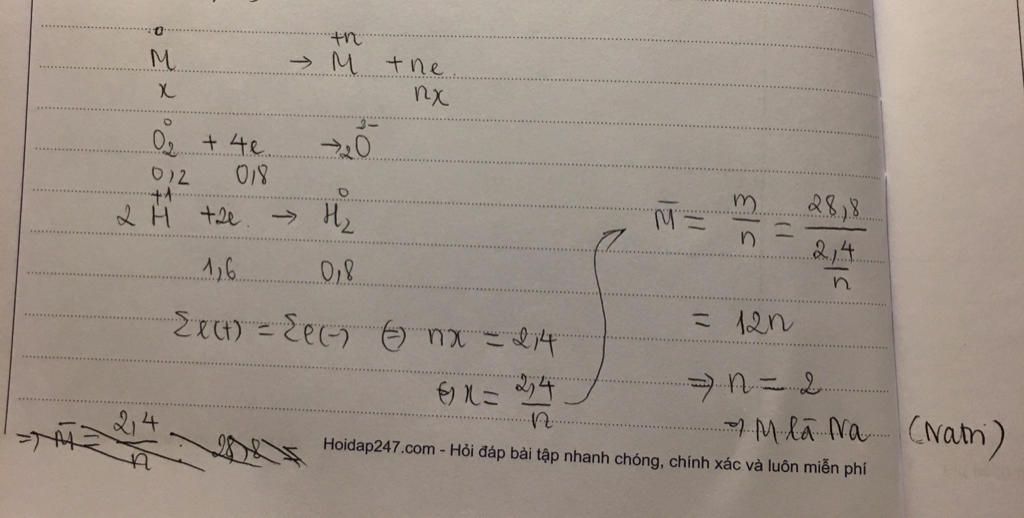 0 +n
M → M + ne
x nx
0 2-
O₂ + 4e → 2O
0,2 0,8
+1 0
2H + 2e → H₂
1,6 0,8
Σe(+) = Σe(-) ⇔ nx = 2,4
⇔ x = 2,4/n
M̄ = m/n = 28,8/(2,4/n)
= 12n
⇒ n = 2
⇒ M là Na (Natri)
⇒ M̄ = 2,4/n : 28,8 =
Hoidap247.com - Hỏi đáp bài tập nhanh chóng, chính xác và luôn miễn phí